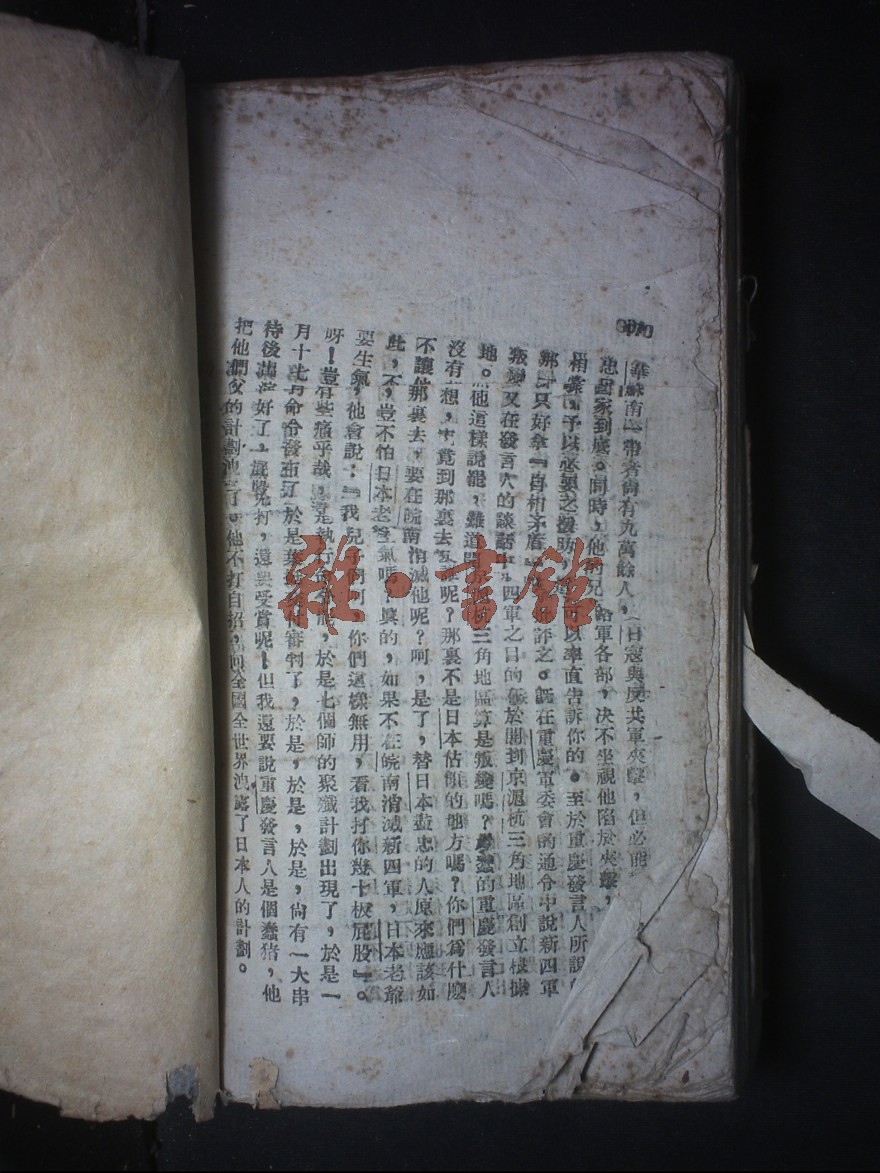 華蘇南一帶者尚有九萬餘人，日寇與反共軍夾擊，但必能
忠國家到底。同時，他的兄 路軍各部，決不坐視他陷於夾擊，
相 予以必要之援助， 可以率直告訴你的。至於重慶發言人所說
那 只好拿「自相矛盾」 評之。既在重慶軍委會的通令中說新四軍
叛變又在發言人的談話 四軍之目的在於開到京滬杭三角地區創立根據
地。 他這樣說罷，難道開 京滬杭三角地區算是叛變嗎？ 的重慶發言人
沒有 想， 竟到那裏去 誰呢？那裏不是日本佔領的地方嗎？你們爲什麼
不讓他那裏去，要在皖南消滅他呢？呵，是了，替日本盡忠的人原來應該如
此，不，豈不怕日本老 氣嗎！真的，如果不在皖南消滅新四軍，日本老爺
要生氣，他會說：「我兒子 你們這樣無用，看我打你幾十板屁股」。
呀！豈有些痛乎哉， 是執行 於是七個師的聚殲計劃出現了，於是一
月十七 命令發布了，於是葉挺 審判了，於是，於是，於是，尚有一大串
待後 好了， 免打，還要受賞呢！但我還要說重慶發言人是個蠢猪，他
把他們 的計劃 了。他不打自招，向全國全世界洩露了日本人的計劃。
雜·書館